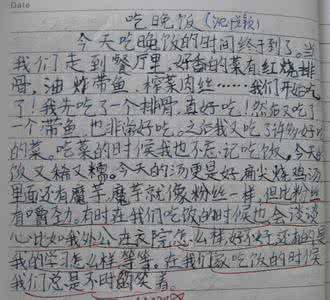 Date
吃晚饭
今天吃晚饭的时间终于到了。当
我们走到餐厅里,好香的菜有红烧排
骨,油炸带鱼、榨菜肉丝……我们开始吃
了!我先吃了一个排骨,真好吃!然后又吃了
一个带鱼,也非常好吃。之后我又吃了许许多多
的菜。吃菜的时候我也不忘记吃饭。今天的
饭又稀又糯。今天的汤更是好 扁尖烧鸡汤
里面还有魔芋,魔芋就像粉丝一样,但比粉丝
有嚼劲。有时在我们吃饭的时候也会谈谈
心比如我外公在医院怎么样,好不好,还有的是
我的学习怎么样等等,在我们吃饭的时候
我们总是不时的笑着。